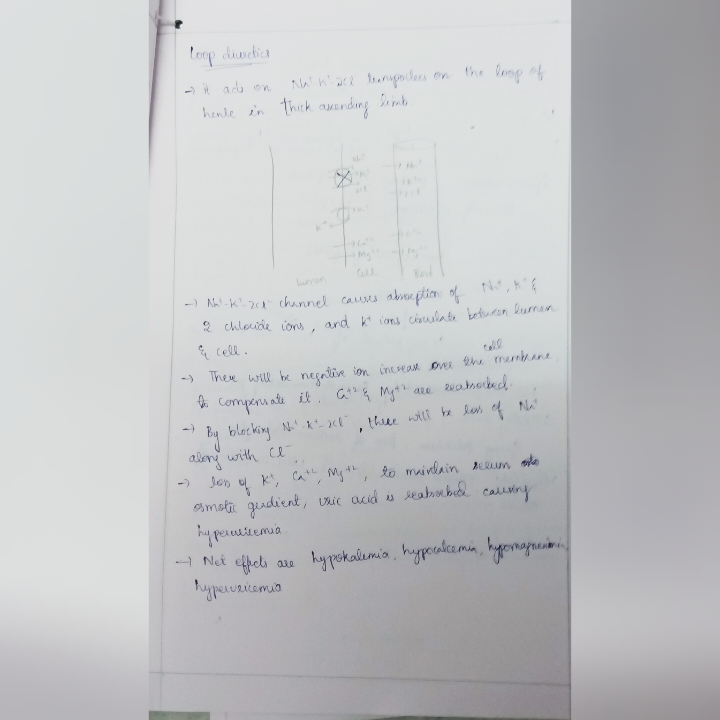 Loop diuretics
→ it acts on Na⁺-K⁺-2Cl⁻ transporters on the loop of
henle in thick ascending limb
Na⁺
Na⁺
K⁺
K⁺
Ca⁺²
Mg⁺²
Mg⁺²
Lumen Cell Blood
→ Na⁺-K⁺-2Cl⁻ channel causes absorption of Na⁺, K⁺ &
2 chloride ions, and K⁺ ions circulate between lumen
& cell.
cell
→ There will be negative ion increase over the membrane
to compensate it. Ca⁺² & Mg⁺² are reabsorbed.
→ By blocking Na⁺-K⁺-2Cl⁻, there will be loss of Na⁺
along with Cl⁻
→ loss of K⁺, Ca⁺², Mg⁺², to maintain
osmotic gradient, uric acid is reabsorbed causing
hyperuricemia
→ Net effects are hypokalemia, hypocalcemia, hypomagnesemia,
hyperuricemia